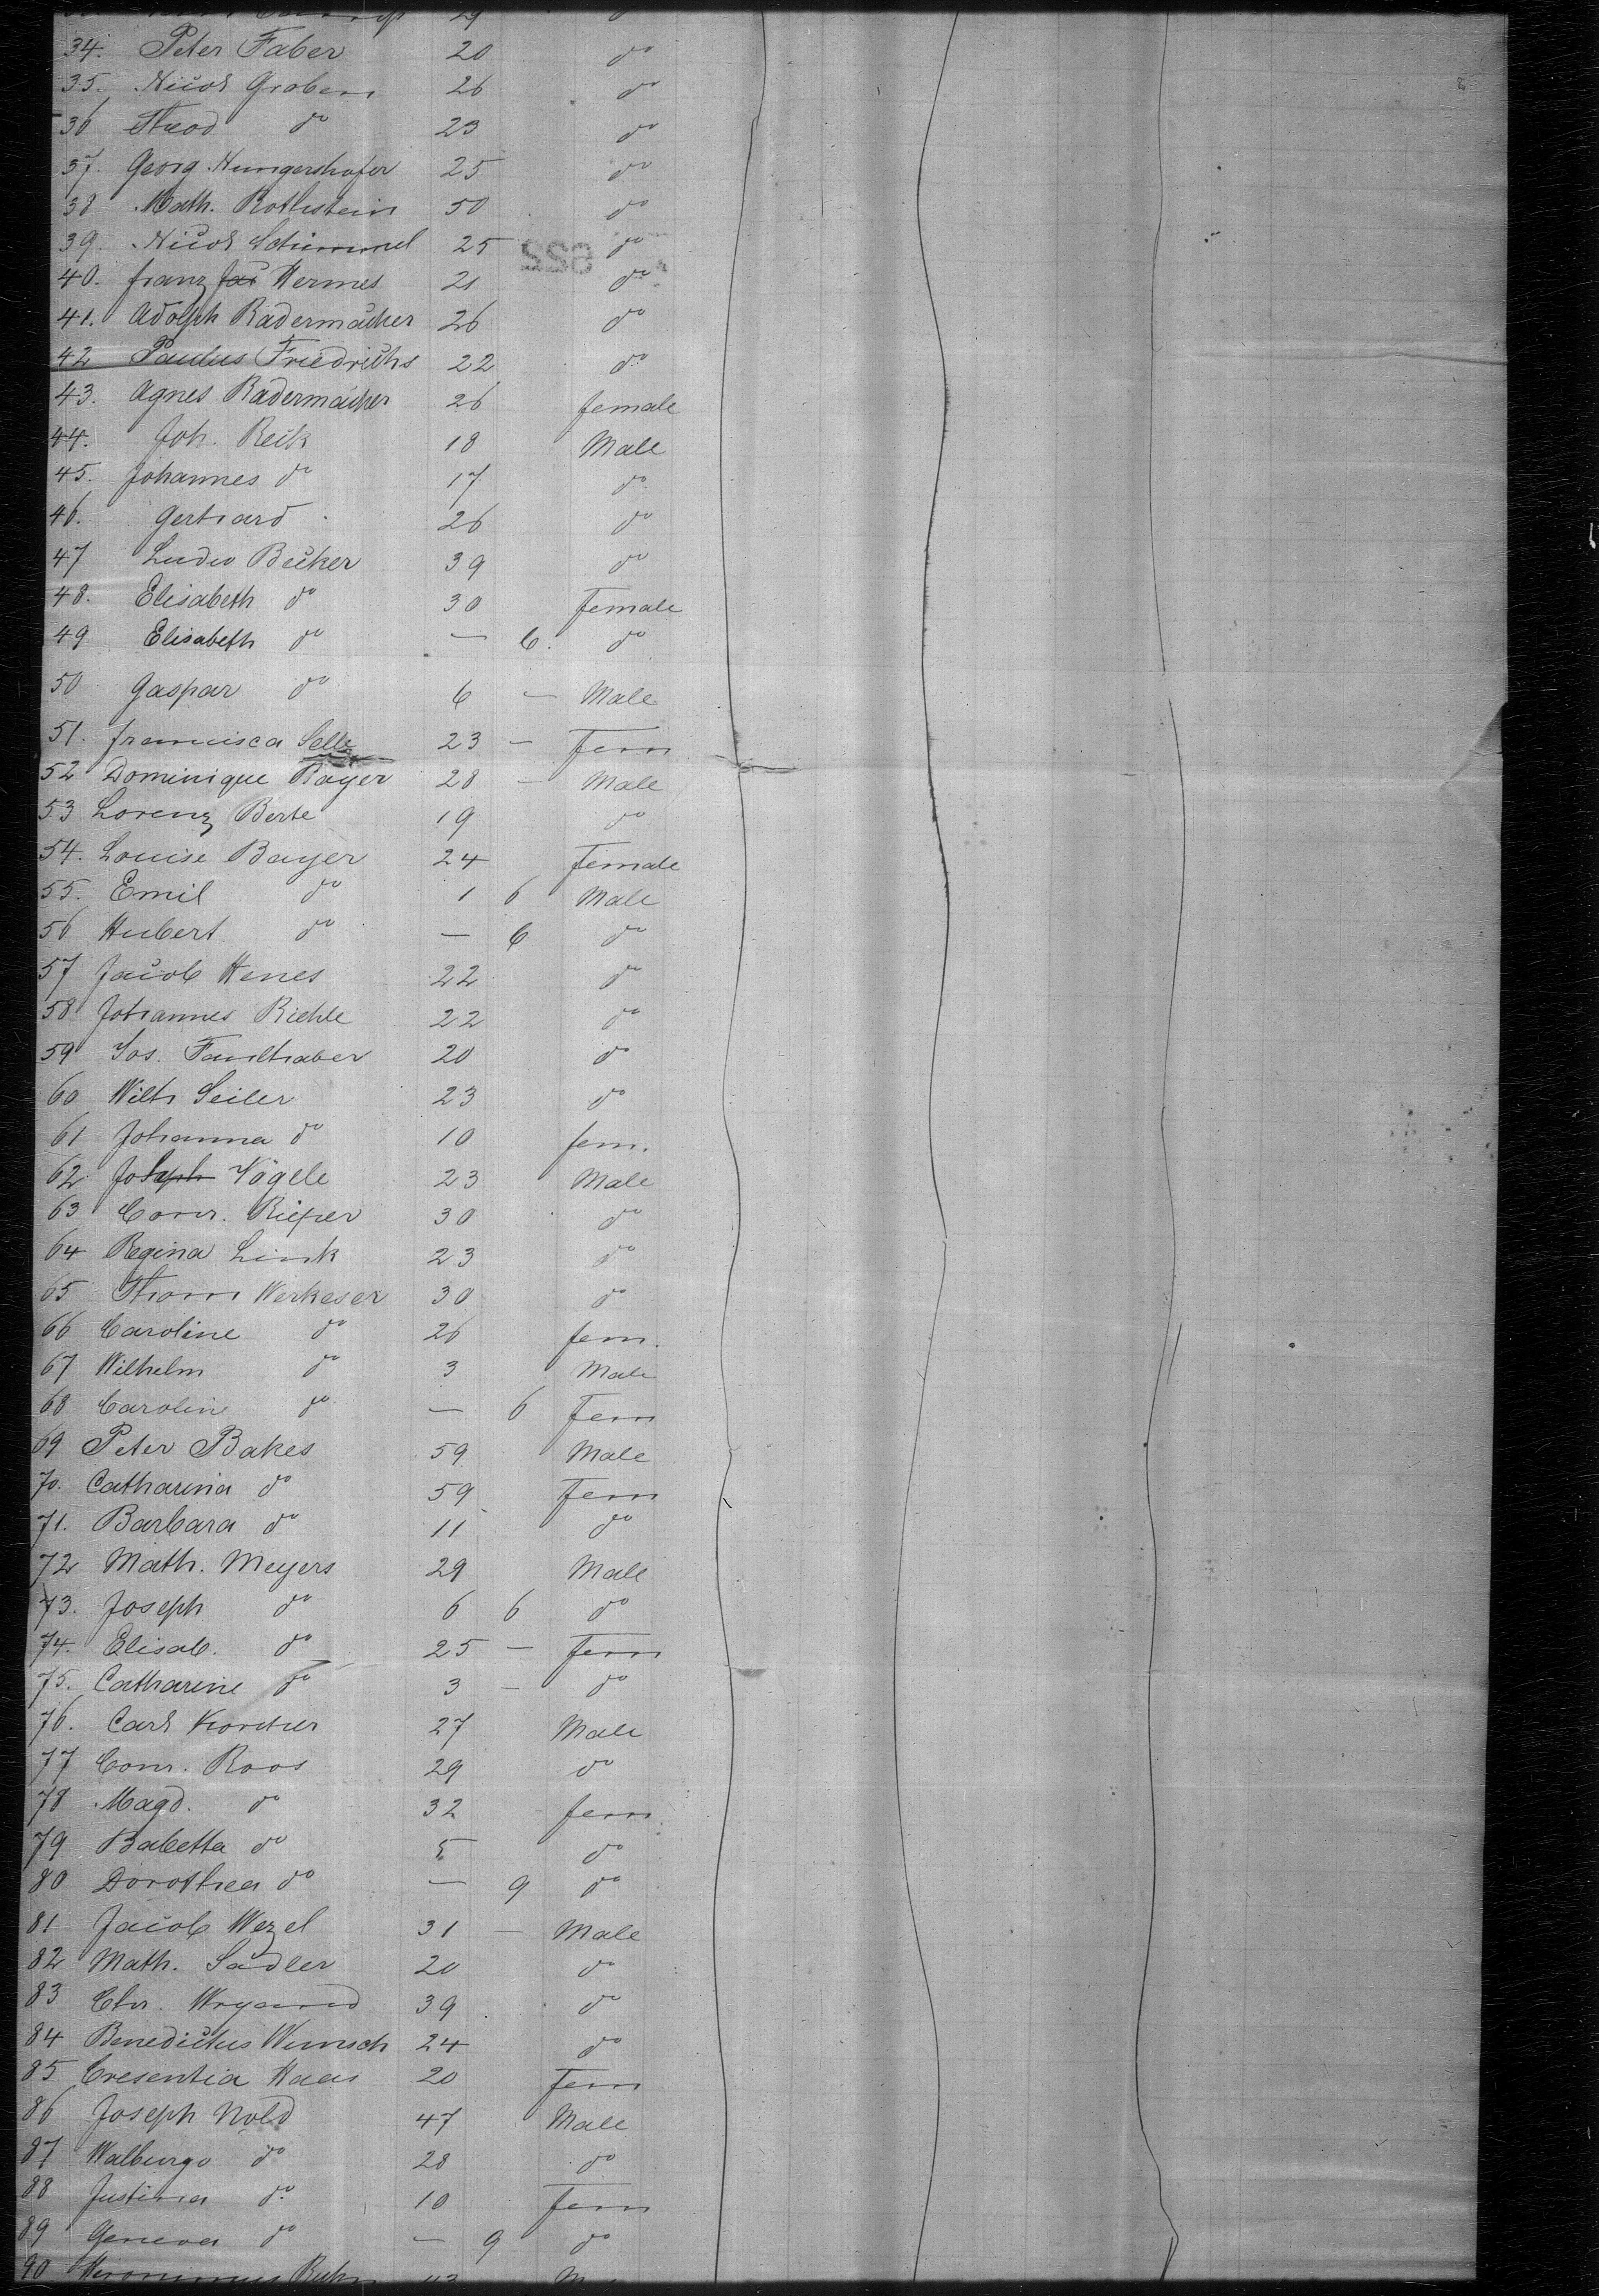 34. Peter Faber 20 do
35. Nicol Groben 26 do
36 Theod do 23 do
37. Georg Hungershofer 25 do
38 Math. Rothstein 50 do
39. Nicol Schimmel 25 do
40. franz Hermes 21 do
41. Adolph Radermacher 26 do
42 Paulus Friedrichs 22 do
43. Agnes Radermacher 26 female
44. Joh. Reik 18 Male
45. Johannes do 17 do
46. Gerhard 26 do
47 Ludw Becker 39 do
48. Elisabeth do 30 Female
49 Elisabeth do — 6. do
50 Gaspar do 6 — Male
51. Francisca Selle 23 — Fem
52 Dominique Bayer 28 — Male
53 Lorenz Berte 19 do
54. Louise Bayer 24 Female
55. Emil do 1 6 Male
56 Hubert do — 6 do
57 Jacob Henes 22 do
58 Johannes Riehle 22 do
59 Jos. Faulhaber 20 do
60 Wilh Seiler 23 do
61 Johanna do 10 fem.
62 Joseph Vögele 23 Male
63 Conr. Rieper 30 do
64 Regina Link 23 do
65 Thom Werkeser 30 do
66 Caroline do 26 fem.
67 Wilhelm do 3 Male
68 Caroline do — 6 Fem
69 Peter Bakes 59 Male
70. Catharina do 59 Fem
71. Barbara do 11 do
72 Math. Meyers 29 Male
73. Joseph do 6 6 do
74. Elisab. do 25 — Fem
75. Catharine do 3 — do
76. Carl 27 Male
77 Conr. Roos 29 do
78 Magd. do 32 fem
79 Babetta do 5 do
80 Dorothea do — 9 do
81 Jacob Wezel 31 — Male
82 Math. Sadler 20 do
83 Chr. Wygand 39 do
84 Benedictus Wunsch 24 do
85 Cresentia Haas 20 Fem
86 Joseph Nold 47 Male
87 Walburga do 28 do
88 Justina do 10 Fem
89 Geneva do — 9 do
90